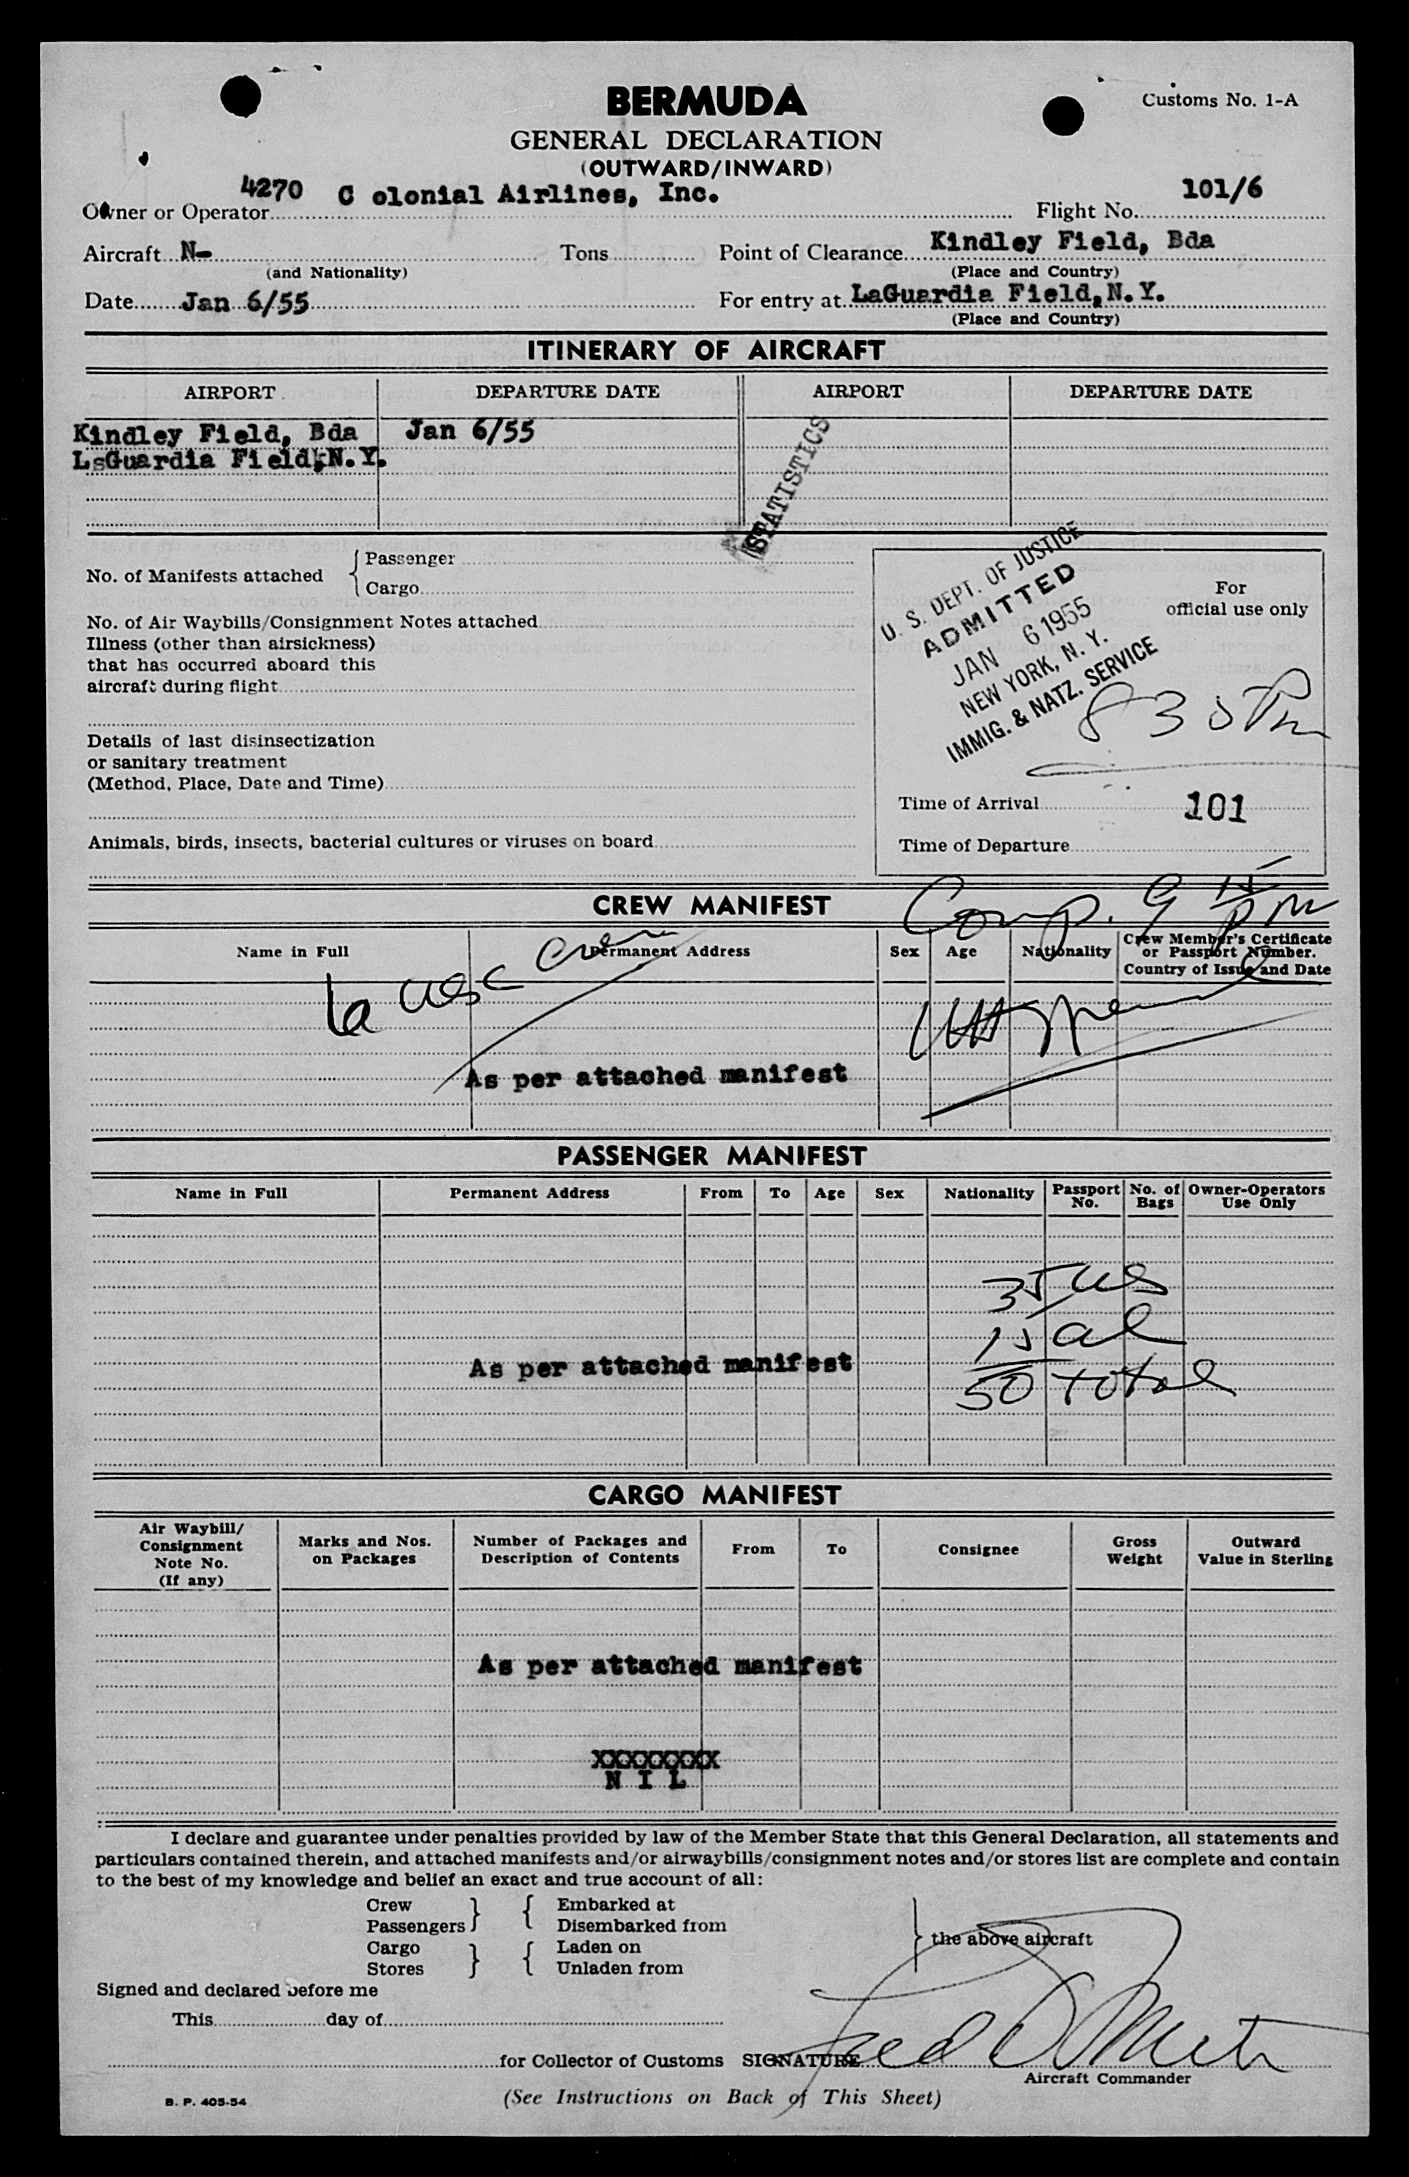 BERMUDA
Customs No. 1-A
GENERAL DECLARATION
(OUTWARD/INWARD)
4270 C olonial Airlines, Inc. 101/6
Owner or Operator Flight No.
Aircraft N- Tons Point of Clearance Kindley Field, Bda
(and Nationality) (Place and Country)
Date Jan 6/55 For entry at LaGuardia Field,N.Y.
(Place and Country)
ITINERARY OF AIRCRAFT
AIRPORT DEPARTURE DATE AIRPORT DEPARTURE DATE
Kindley Field, Bda Jan 6/55
LsGuardia Field,N.Y.
STATISTICS
No. of Manifests attached { Passenger
Cargo
No. of Air Waybills/Consignment Notes attached
Illness (other than airsickness)
that has occurred aboard this
aircraft during flight
Details of last disinsectization
or sanitary treatment
(Method, Place, Date and Time)
Animals, birds, insects, bacterial cultures or viruses on board
U. S. DEPT. OF JUSTICE
ADMITTED
JAN 6 1955
NEW YORK, N. Y.
IMMIG. & NATZ. SERVICE
For
official use only
830 Pm
Time of Arrival 101
Time of Departure
Comp. 9 15 pm
CREW MANIFEST
Name in Full Permanent Address Sex Age Nationality Crew Member's Certificate
or Passport Number.
Country of Issue and Date
6a usc crew
As per attached manifest
PASSENGER MANIFEST
Name in Full Permanent Address From To Age Sex Nationality Passport No. No. of Bags Owner-Operators Use Only
35 us
15 al
As per attached manifest
50 total
CARGO MANIFEST
Air Waybill/
Consignment
Note No.
(If any)
Marks and Nos.
on Packages
Number of Packages and
Description of Contents
From To Consignee
Gross
Weight
Outward
Value in Sterling
As per attached manifest
XXXXXXXX
N I L
I declare and guarantee under penalties provided by law of the Member State that this General Declaration, all statements and
particulars contained therein, and attached manifests and/or airwaybills/consignment notes and/or stores list are complete and contain
to the best of my knowledge and belief an exact and true account of all:
Crew } { Embarked at
Passengers Disembarked from
Cargo } { Laden on
Stores Unladen from
} the above aircraft
Signed and declared before me
This day of
for Collector of Customs SIGNATURE
Aircraft Commander
B. P. 405-54
(See Instructions on Back of This Sheet)